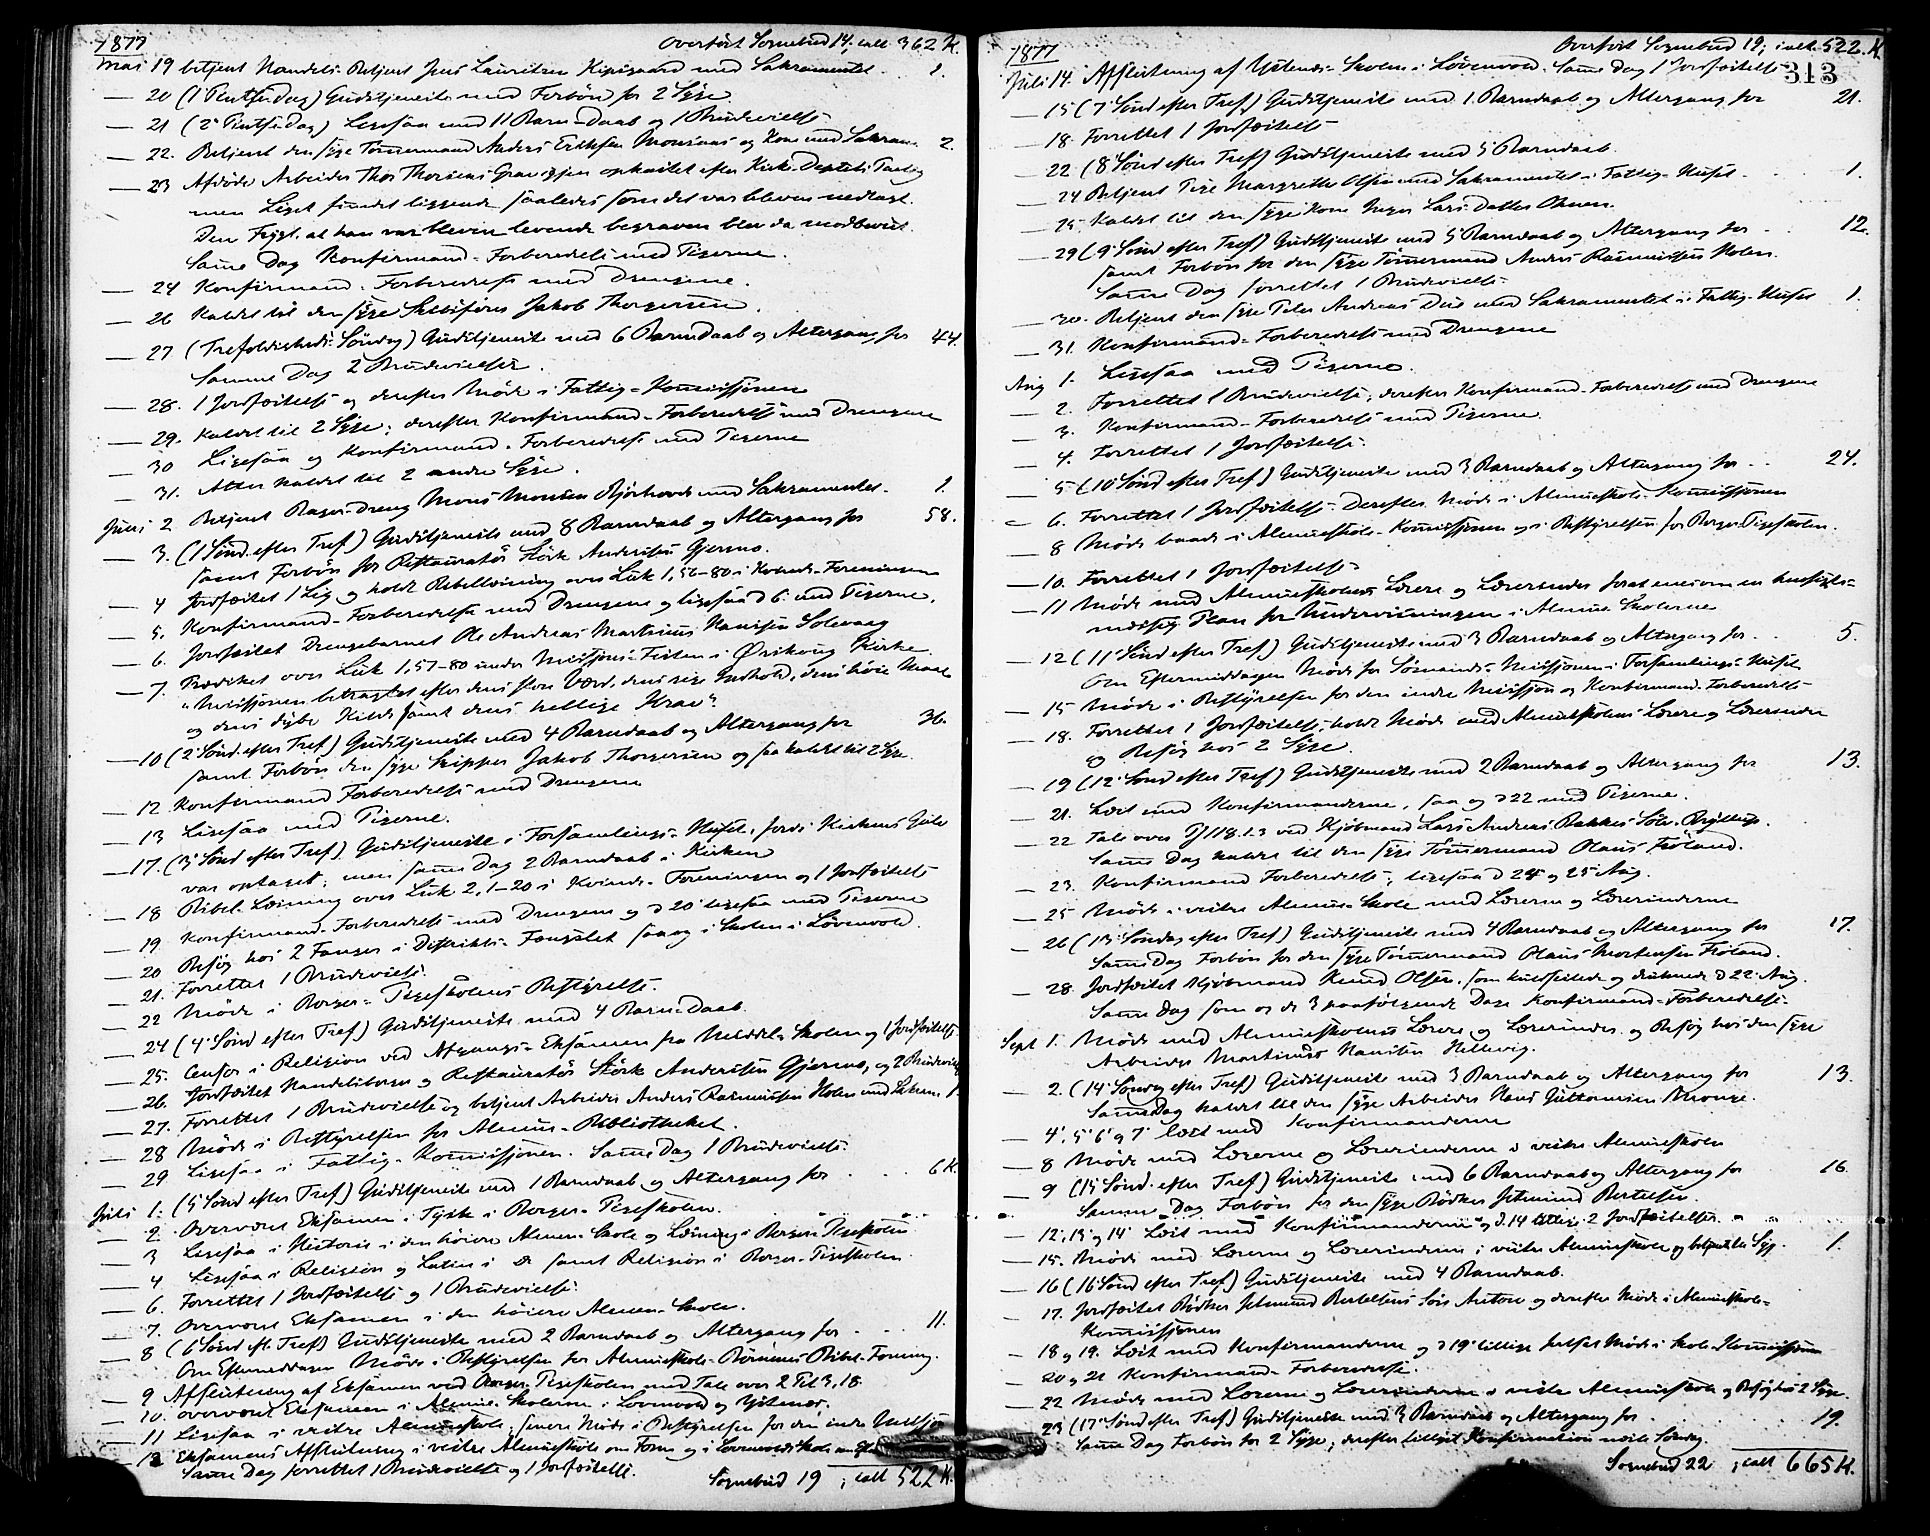 1877 Overført Sognebud 14, ialt 362 K.
Mai 19 betjent Handels-Betjent Jens Lauritzen Kipisgaard med Sakramentet. 1.
— 20 (1 Pintsedag) Gudstjeneste med Forbön for 2 Syge
— 21 (2 Pintsedag) Ligesaa med 11 Barn-Daab og 1 Brudevielse
— 22. Betjent den syge Tömmermand Anders Eriksen Monsaas og Kone med Sakram. 2.
— 23 Afdöde Arbeider Thor Thorsens Grav igjen opkastet efter Kirk-Deptets Tilladelse
men Liget fundet liggende saaledes som det var bleven nedlagt.
Den Frygt, at han var bleven levende begraven blev da modbevist.
Samme Dag Konfirmand-Forberedelse med Pigerne.
— 24 Konfirmand-Forberedelse med Drengene.
— 26 Kaldet til den syge Skibsförer Jakob Thorgersen
— 27 (Trefoldigheds-Söndag) Gudstjeneste med 6 Barndaab og Altergang for 44.
Samme Dag 2 Brudevielser.
— 28. 1 Jordfæstelse og derefter Möde i Fattig-Kommissjonen
— 29. Kaldet til 2 Syge; derefter Konfirmand-Forberedelse med Drengene
— 30 Ligesaa og Konfirmand-Forberedelse med Pigerne
— 31. Atter kaldet til 2 andre Syge.
Juni 2 Betjent Bager-Dreng Mons Monsen Björhovde med Sakramentet. 1.
— 3. (1 Sönd. efter Tref) Gudstjeneste med 8 Barndaab og Altergang for 58.
samt Forbön for Restauratör Störk Andersen Gjermo.
— 4 Jordfæstet 1 Lig og holdt Bibellæsning over Luk 1,56-80 i Kvinde-Foreningen
— 5. Konfirmand-Forberedelse med Drengene og ligesaa d 6. med Pigerne.
— 6. Jordfæstet Drengebarnet Ole Andreas Martinus Hansen Solevaag
— 7. Prædiket over Luk 1,57-80 under Missjons-Festen i Ørskoug Kirke.
"Missjonen betragtet efter dens store Værd, dens rige Indhold, dens höie Maal
og dens dybe Kilde samt dens hellige Krav".
— 10 (2 Sönd. efter Tref) Gudstjeneste med 4 Barndaab og Altergang for 36.
samt Forbön den syge Skipper Jakob Thorgersen og saa kaldet til 2 Syge.
— 12 Konfirmand Forberedelse med Drengene
— 13 Ligesaa med Pigerne.
— 17. (3 Sönd efter Tref) Gudstjeneste i Forsamlings-Huset, fordi Kirkens Gulv
var optaget; men samme Dag 2 Barndaab i Kirken
— 18 Bibel-Læsning over Luk 2,1-20 i Kvinde-Foreningen og 1 Jordfæstelse
— 19. Konfirmand-Forberedelse med Drengene og d 20 ligesaa med Pigerne
— 20 Besög hos 2 Fanger i Distrikts-Fængslet saa og i Skolen i Lövenvold.
— 21. Forrettet 1 Brudevielse.
— 22 Möde i Borger-Pigeskolens Bestyrelse.
— 24 (4 Sönd efter Tref) Gudstjeneste med 4 Barn-Daab.
— 25. Censor i Religion ved Afgangs-Eksamen fra Middel-Skolen og 1 Jordfæstelse.
— 26. Jordfæstet Handelsborger og Restauratör Störk Andersen Gjermo, og 2 Brudevielser
— 27. Forrettet 1 Brudevielse og betjent Arbeider Anders Rasmussen Holen med Sakram. 1.
— 28 Möde i Bestyrelsen for Almue-Bibliotheket.
— 29 Ligesaa i Fattig-Kommissjonen. Samme Dag 1 Brudevielse.
Juli 1. (5 Sönd efter Tref) Gudstjeneste med 1 Barndaab og Altergang for 6 K.
— 2. Overværet Eksamen i Tysk i Borger-Pigeskolen.
— 3 Ligesaa i Historie i den höiere Almen-Skole og Læsning i Borger-Pigeskolen
— 4 Ligesaa i Religion og Latin i Do samt Religion i Borger-Pigeskolen
— 6. Forrettet 1 Jordfæstelse og 1 Brudevielse.
— 7. Overværet Eksamen i den höiere Almen-Skole.
— 8 (6 Sönd eft. Tref) Gudstjeneste med 2 Barndaab og Altergang for 11.
Om Eftermiddagen Möde i Bestyrelsen for Almueskole-Börnenes Bibel-Forening.
— 9 Afslutning af Eksamen ved Borger-Pigeskolen med Tale over 2 Pet 3,18.
— 10. overværet Eksamen i Almue-Skolerne i Lövenvold og Ystenes.
— 11 Ligesaa i vestre Almueskole, senere Möde i Bestyrelsen for den indre Missjon
— 13 Eksamens Afslutning i vestre Almueskole om Form og i Lövenvolds Skole om
Samme Dag forrettet 1 Brudevielse og 1 Jordfæstelse.
Sognebud 19; ialt 522 K.
1877 Overført Sognebud 19; ialt 522. K
313
Juli 14. Afslutning af Ystenes-Skolen i Lövenvold. Samme Dag 1 Jordfæstelse
— 15 (7 Sönd efter Tref) Gudstjeneste med 1. Barndaab og Altergang for 21.
— 18. Forrettet 1 Jordfæstelse
— 22 (8 Sönd efter Tref) Gudstjeneste med 5 Barndaab.
— 24 Betjent Pige Margrethe Olsen med Sakramentet i Fattig-Huset 1.
— 25. Kaldet til den syge Kone Inger Lars-Datter Ohnen.
— 29 (9 Sönd efter Tref) Gudstjeneste med 5 Barndaab og Altergang for 12.
samt Forbön for den syge Tömmermand Anders Rasmussen Holen.
Samme Dag forrettet 1 Brudevielse.
— 30. Betjent den syge Peter Andreas Due med Sakramentet i Fattig-Huset 1.
— 31. Konfirmand-Forberedelse med Drengene
Aug 1. Ligesaa med Pigerne.
— 2. Forrettet 1 Brudevielse, derefter Konfirmand-Forberedelse med Drengene
— 3. Konfirmand-Forberedelse med Pigerne.
— 4. Forrettet 1 Jordfæstelse.
— 5 (10 Sönd efter Tref) Gudstjeneste med 3 Barndaab og Altergang for 24.
— 6. Forrettet 1 Jordfæstelse. Derefter Möde i Almueskole-Kommissjonen
— 8 Möde baade i Almueskole-Kommissjonen og i Bestyrelsen for Borger-Pigeskolen.
— 10. Forrettet 1 Jordfæstelse
— 11 Möde med Almueskolens Lærere og Lærerinder forat enes om en hensigts-
mæssig Plan for Undervisningen i Almue-Skolerne
— 12 (11 Sönd efter Tref) Gudstjeneste med 3 Barndaab og Altergang for 5.
Om Eftermiddagen Möde for Sömands-Missjonen i Forsamlings-Huset
— 15 Möde i Bestyrelsen for den indre Missjon og Konfirmand-Forberedelse
— 18. Forrettet 1 Jordfæstelse, holdt Möde med Almueskolens Lærere og Lærerinder
og Besög hos 2 Syge.
— 19 (12 Sönd efter Tref) Gudstjeneste med 2 Barndaab og Altergang for 13.
— 21. Læst med Konfirmanderne, saa og d 22 med Pigerne.
— 22 Tale over Ps 118.1.3 ved Kjöbmand Lars Andreas Bakkes Sölv-Bryllup.
Samme Dag kaldet til den syge Tömmermand Olaus Fröland.
— 23. Konfirmand Forberedelse; ligesaa d 24 og 25 Aug.
— 25 Möde i vestre Almue-Skole med Lærerne og Lærerinderne
— 26 (13 Söndag efter Tref) Gudstjeneste med 4 Barndaab og Altergang for 17.
Samme Dag Forbön for den syge Tömmermand Olaus Mortensen Fröland.
— 28. Jordfæstet Kjöbmand Knud Olsen, som kuldseilede og druknede d 22 Aug.
Samme Dag som og de 3 paafölgende Dage Konfirmand-Forberedelse.
Sept 1. Möde med Almueskolens Lærere og Lærerinder og Besög hos den syge
Arbeider Martinus Hansen Hellevig.
— 2. (14 Söndag efter Tref) Gudstjeneste med 3 Barndaab og Altergang for 13.
Samme Dag kaldet til den syge Arbeider Hans Guttormsen Mronge.
— 4, 5, 6 og 7 læst med Konfirmanderne
— 8 Möde med Lærerne og Lærerinderne i vestre Almueskole
— 9 (15 Sönd. efter Tref) Gudstjeneste med 6 Barndaab og Altergang for 16.
Samme Dag Forbön for den syge Bödker Jetmund Bertelsen.
— 12, 13 og 14 Læst med Konfirmanderne og d. 14 tillige 2 Jordfæstelser
— 15. Möde med Lærerne og Lærerinderne i vestre Almueskole og betjent 1 Syg. 1.
— 16 (16 Sönd efter Tref) Gudstjeneste med 4 Barndaab.
— 17. Jordfæstet Bödker Jetmund Bertelsens Sön Anton og derefter Möde i Almueskole-
Kommissjonen
— 18 og 19. Læst med Konfirmanderne og d 19 tillige Möde i Skole-Kommissjonen
— 20 og 21 Konfirmand-Forberedelse.
— 22 Möde med Lærerne og Lærerinderne i vestre Almueskole og Besög hos 2 Syge.
— 23 (17 Sönd efter Tref) Gudstjeneste med 3 Barndaab og Altergang for 19.
Samme Dag Forbön for 2 Syge; derefter tillyst Konfirmation næste Söndag.
Sognebud 22; ialt 665 K.